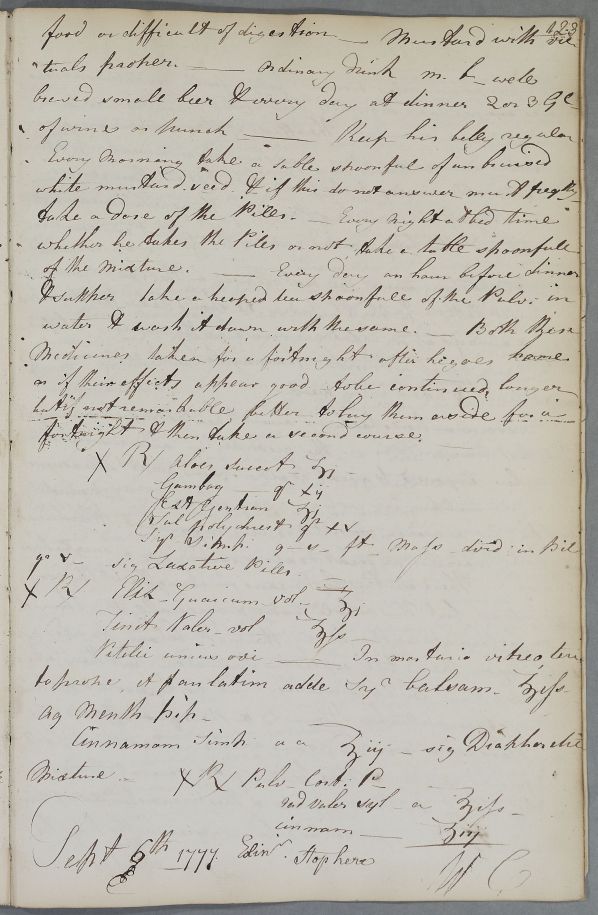 123
food or difficult of digestion — Mustard with vic
tuals proper. — ordinary drink m. b. wele
brewed small beer & every day at dinner 2 or 3 Gls
of wine or punch — Keep his belly regular
Every Morning take a table spoonful of unbruised
white mustard seed. & if this do not answer must freqtly
take a dose of the Pills. — Every night at bed time
whether he takes the Piles or not take a table spoonfull
of the Mixture. — Every day an hour before dinner
& supper take a heeped tea spoonfull of the Pulv: in
water & wash it down with the same. — Both these
Medicines taken for a fortnight after he goes home
n if their effects appear good to be continued longer
but if not remarkable better to lay them aside for a
fortnight & then take a second course.
X R/ Aloes succot ʒj
Gambog — gr xij
Ext Gentian ʒj
Sal polychrest gr xv
Syr Simp. q — s — ft — Mass divid: in pil
gr v — sig Laxative Pills.
X R/ Elix — Guaiacum vol — ℥j
Tinct Valer — vol ℥ss
Vitelli unius ovi — In mortario vitreo, tere
to prope, et paulatim adde Syr balsam — ℥iss
aq Menth pip —
Cinnamom Simp a a ℥iij — sig Diaphoretic
Mixture — X R/ Pulv — Cort: P —
rad valer syl — a ℥iss —
cinnam — ʒiij
Sept 6th 1777. Edinr.
W C